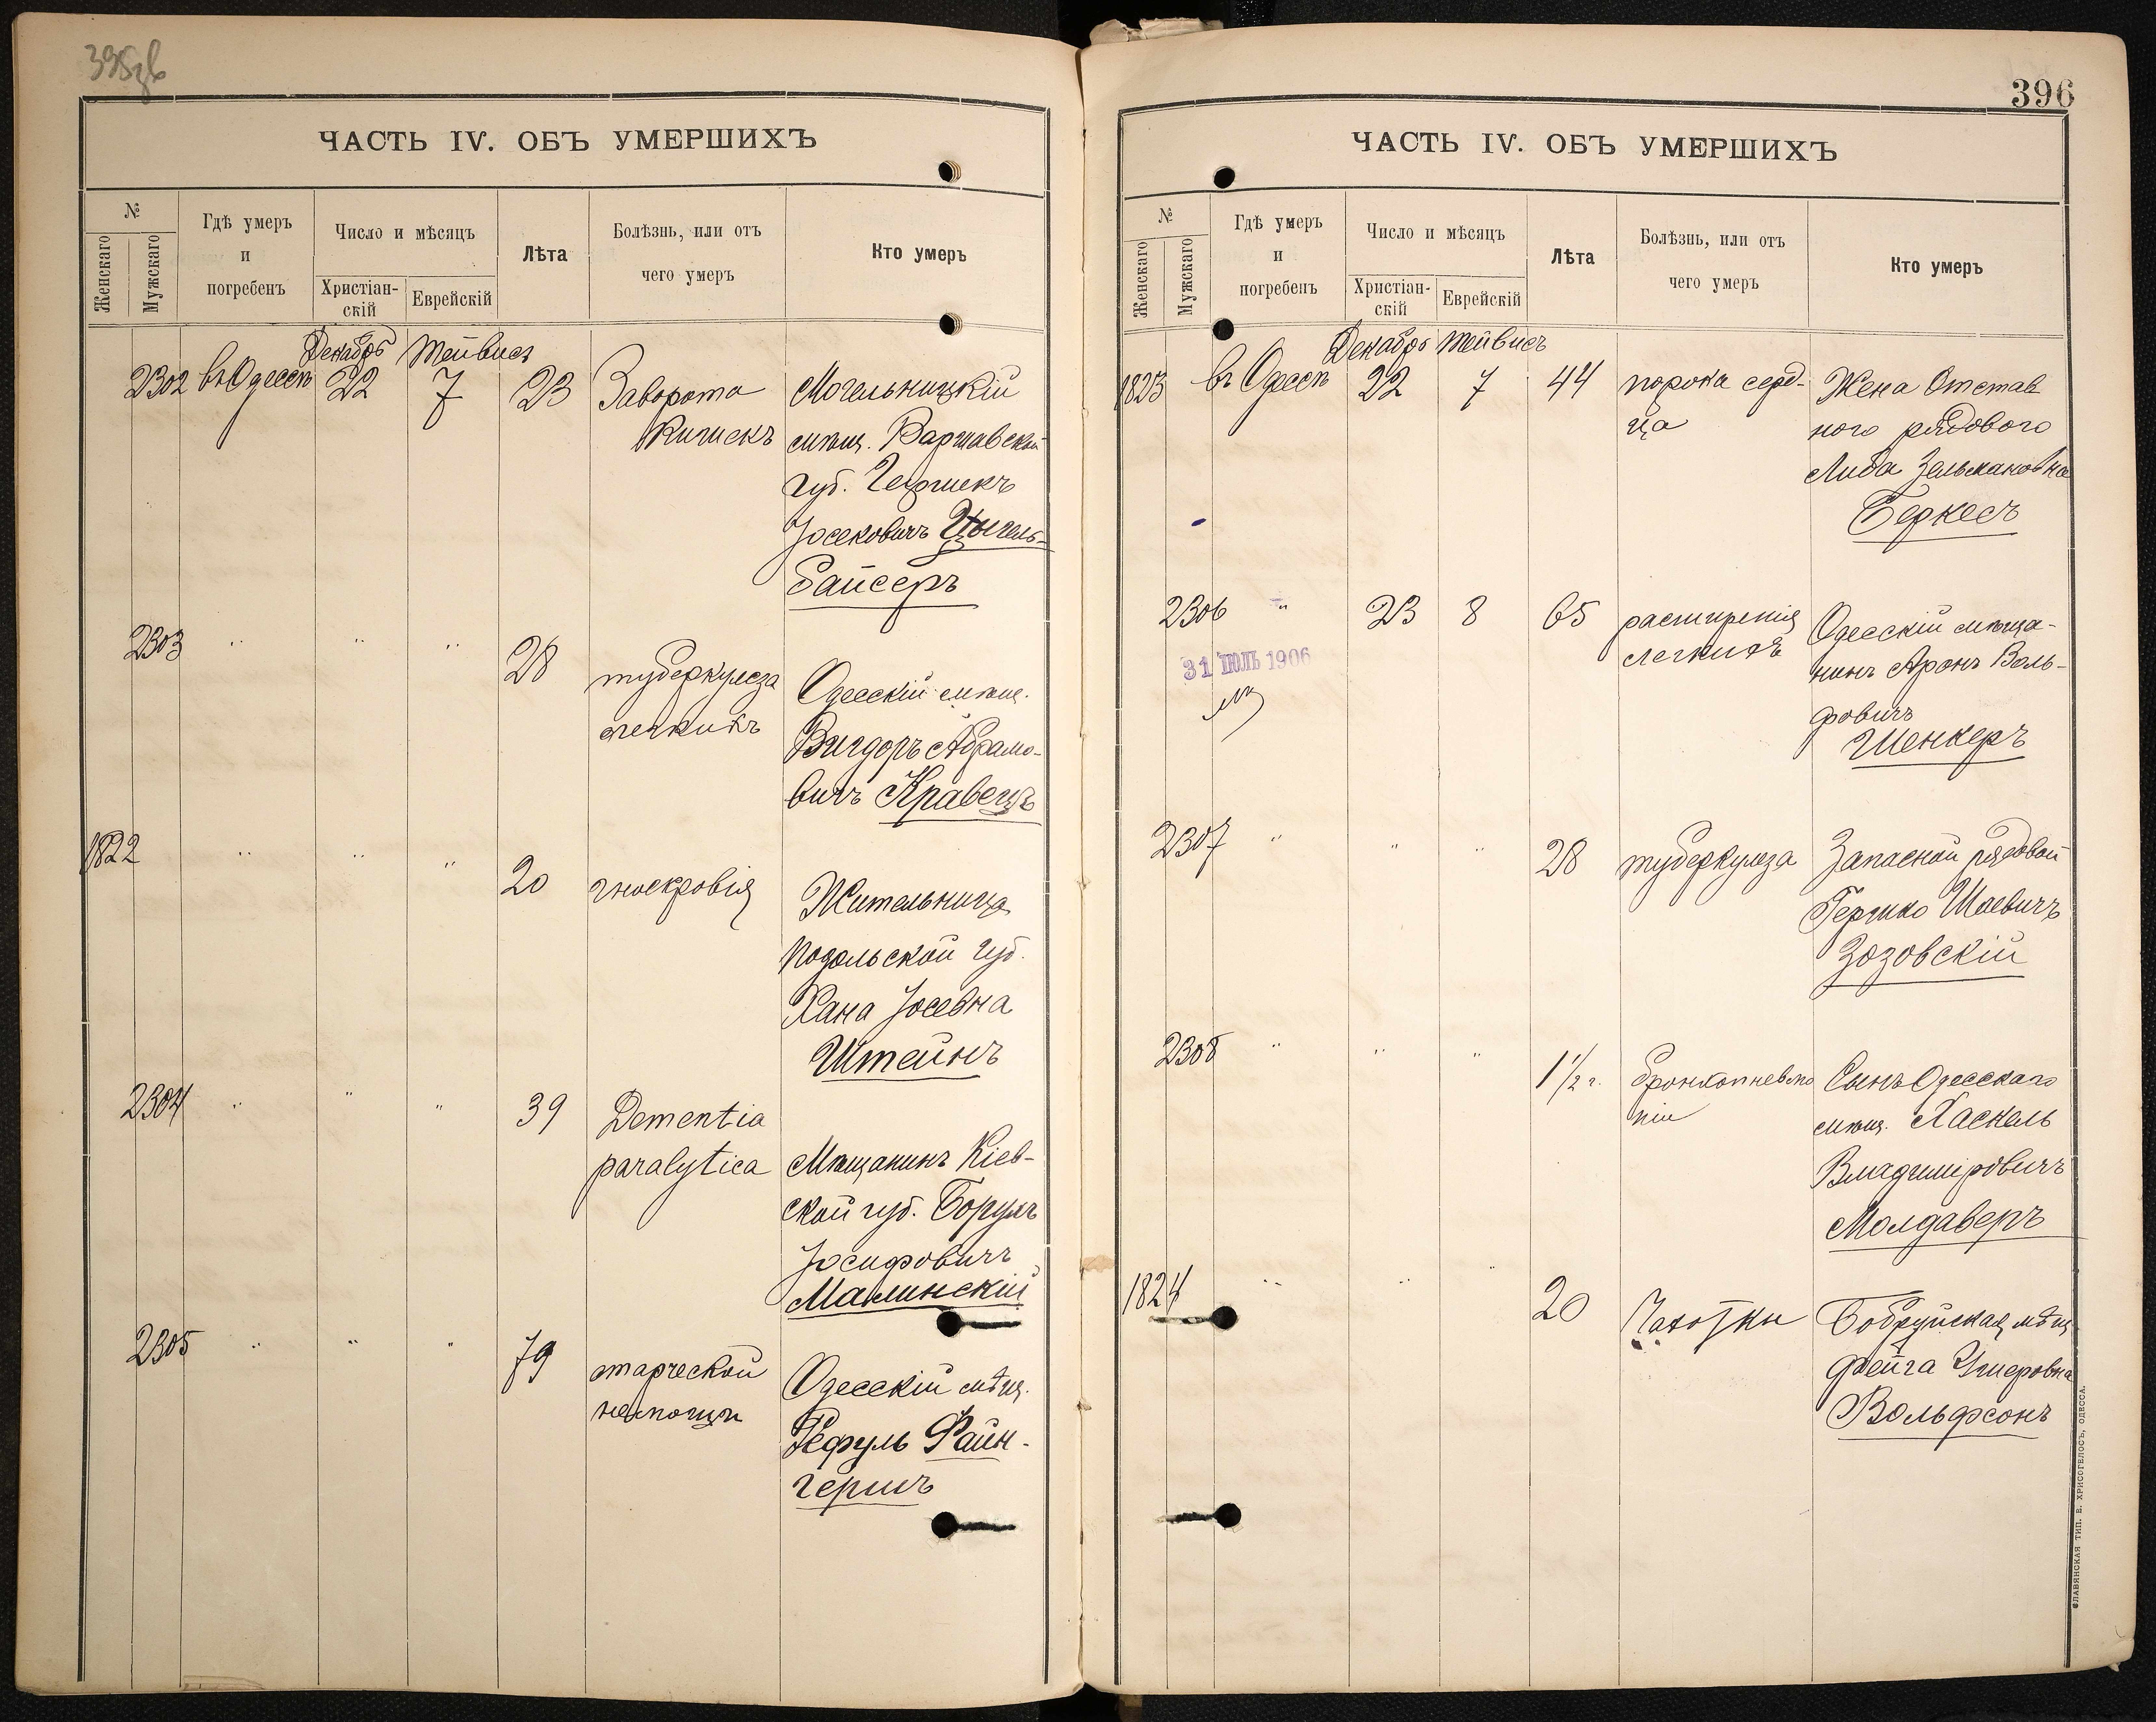 ЧАСТЬ IV. ОБЪ УМЕРШИХЪ
№
Женскаго
Мужскаго
Гдѣ умеръ
и
погребенъ
Число и мѣсяцъ
Христіан-
скій
Еврейскій
Лѣта
Болѣзнь, или отъ
чего умеръ
Кто умеръ
Декабрь Тейвисъ
2302 въ Одессѣ 22 7 23
Заворота
кишекъ
Могельницкій
мѣщ. Варшавской
губ. Гершекъ
Іосековичъ
байсеръ
2303 " " " 28
туберкулеза
легкихъ
Одесскій мѣщ.
Вигдоръ Абрамо-
вичъ Кравецъ
1822 " " " 20
гноекровія
Жительница
Подольской губ.
Хана Іосевна
Штейнъ
2304 " " " 39
Dementia
paralytica
Мѣщанинъ Кіев-
ской губ. Борухъ
Іосифовичъ
Малинскій
2305 " " " 79
старческой
немощи
Одесскій мѣщ.
Рефуль Файн-
гершъ
396
ЧАСТЬ IV. ОБЪ УМЕРШИХЪ
№
Женскаго
Мужскаго
Гдѣ умеръ
и
погребенъ
Число и мѣсяцъ
Христіан-
скій
Еврейскій
Лѣта
Болѣзнь, или отъ
чего умеръ
Кто умеръ
Декабрь Тейвисъ
1823 въ Одессѣ 22 7 44
порока серд-
ца
Жена Отстав
ного рядового
Либа Зельмановна
Беркесъ
2306 " 23 8 65
31 ІЮЛЬ 1906
расширенія
легкихъ
Одесскій мѣща-
нинъ Аронъ Воль-
фовичъ
Шенкеръ
2307 " " " 28
туберкулеза
Запасной рядовой
Гершко Шаевичъ
Зозовскій
2308 " " " 1 1/2 г.
бронхопневмо
ніи
Сынъ Одесскаго
мѣщ. Хаскель
Владиміровичъ
Молдаверъ
1824 " " " 20
Чахотки
Бобруйская мѣщ
Фейга Ушеровна
Вольфсонъ
СЛАВЯНСКАЯ ТИП. Е. ХРИСОГЕЛОСЪ, ОДЕССА.